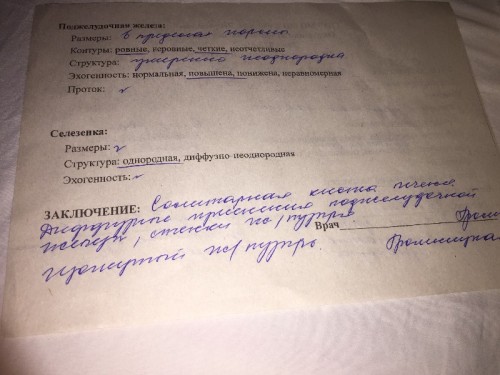 Поджелудочная железа:
Размеры: в пределах нормы.
Контуры: ровные, неровные, четкие, неотчетливые
Структура: умеренно неоднородна
Эхогенность: нормальная, повышена, понижена, неравномерная
Проток: г
Селезенка:
Размеры: г
Структура: однородная, диффузно-неоднородная
Эхогенность:
ЗАКЛЮЧЕНИЕ: Солитарная киста печени.
Диффузные изменения поджелудочной
железы, стенки ж/пузыря.
Врач
ж/пузырь.